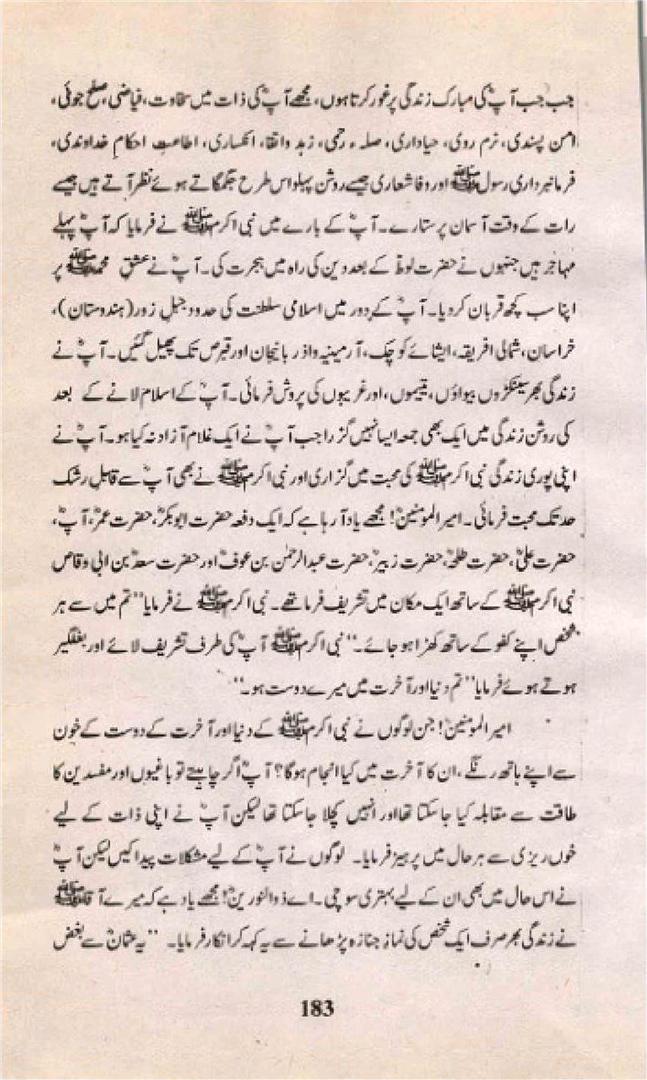 جب جب آپؓ کی مبارک زندگی پر غور کرتا ہوں، مجھے آپؓ کی ذات میں سخاوت، فیاضی، صلح جوئی،
امن پسندی، نرم روی، حیاداری، صلہ رحمی، زہد واتقا، انکساری، اطاعتِ احکامِ خداوندی،
فرمانبرداری رسولﷺ اور وفا شعاری جیسے روشن پہلو اس طرح جگمگاتے ہوئے نظر آتے ہیں جیسے
رات کے وقت آسمان پر ستارے۔ آپؓ کے بارے میں نبی اکرمﷺ نے فرمایا کہ آپؓ پہلے
مہاجر ہیں جنہوں نے حضرت لوطؑ کے بعد دین کی راہ میں ہجرت کی۔ آپؓ نے عشقِ محمدﷺ پر
اپنا سب کچھ قربان کر دیا۔ آپؓ کے دور میں اسلامی سلطنت کی حدود جبلِ زور (ہندوستان)،
خراسان، شمالی افریقہ، ایشائے کوچک، آرمینیہ واذربائیجان اور قبرص تک پھیل گئیں۔ آپؓ نے
زندگی بھر سینکڑوں بیواؤں، یتیموں، اور غریبوں کی پروش فرمائی۔ آپؓ کے اسلام لانے کے بعد
کی روشن زندگی میں ایک بھی جمعہ ایسا نہیں گزرا جب آپؓ نے ایک غلام آزاد نہ کیا ہو۔ آپؓ نے
اپنی پوری زندگی نبی اکرمﷺ کی محبت میں گزاری اور نبی اکرمﷺ نے بھی آپؓ سے قابلِ رشک
حد تک محبت فرمائی۔ امیر المومنینؓ! مجھے یاد آ رہا ہے کہ ایک دفعہ حضرت ابوبکرؓ، حضرت عمرؓ، آپؓ،
حضرت علیؓ، حضرت طلحہؓ، حضرت زبیرؓ، حضرت عبدالرحمٰن بن عوفؓ اور حضرت سعدؓ بن ابی وقاص
نبی اکرمﷺ کے ساتھ ایک مکان میں تشریف فرما تھے۔ نبی اکرمﷺ نے فرمایا ’’تم میں سے ہر
شخص اپنے کفو کے ساتھ کھڑا ہو جائے۔‘‘ نبی اکرمﷺ آپؓ کی طرف تشریف لائے اور بغلگیر
ہوتے ہوئے فرمایا ’’تم دنیا اور آخرت میں میرے دوست ہو۔‘‘
امیر المومنینؓ! جن لوگوں نے نبی اکرمﷺ کے دنیا اور آخرت کے دوست کے خون
سے اپنے ہاتھ رنگے، ان کا آخرت میں کیا انجام ہوگا؟ آپؓ اگر چاہتے تو باغیوں اور مفسدین کا
طاقت سے مقابلہ کیا جا سکتا تھا اور انہیں کچلا جا سکتا تھا لیکن آپؓ نے اپنی ذات کے لیے
خوں ریزی سے ہر حال میں پرہیز فرمایا۔ لوگوں نے آپؓ کے لیے مشکلات پیدا کیں لیکن آپؓ
نے اس حال میں بھی ان کے لیے بہتری سوچی۔ اے ذوالنورینؓ! مجھے یاد ہے کہ میرے آقاﷺ
نے زندگی بھر صرف ایک شخص کی نمازِ جنازہ پڑھانے سے یہ کہہ کر انکار فرمایا۔ ’’یہ عثمانؓ سے بغض
183